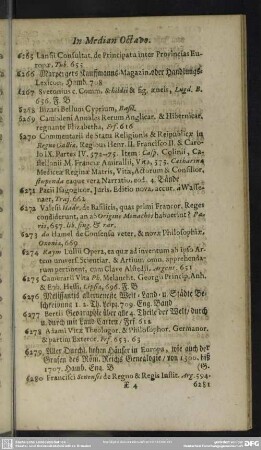 In Median Octavo.
6265 Lansii Consultat. de Principatu inter Provincias Europæ. Tub. 655
6266 Marpergers Kauffmanns-Magazin oder Handlungs-Lexicon. Hamb. 708
6267 Svetonius c. Comm. & Indici & fig. æneis, Lugd. B. 656. F. B
6268 Bizari Bellum Cyprium, Basil.
6269 Camdeni Annales Rerum Anglicar. & Hibernicar. regnante Elizabetha, Frf. 616
6270 Commentarii de Statu Religionis & Reipublicæ in Regno Galliæ, Regibus Henr. II. Francisco II. & Carolo IX. Partes IV. 572-75. Item Casp. Colinii, Castellonii M. Franc. Amirallii, Vita, 575. Catharinæ Mediceæ Reginæ Matris, Vitæ, Actorum & Consilior. stupenda eaque vera Narratio.
6271 Pacii Isagogicor. Juris. Editio nova, accur. à Wassenaer, Traj. 662
6272 Valesii Hadr. de Basilicis, quas primi Francor. Reges condiderunt, an ab origine Monachos habuerint? Paris, 657.
6273 du Hamel de Consensu veter. & novæ Philosophiæ, Oxonia, 669
6274 Raym. Lullii Opera, ea quæ ad inventam ab ipso Artem universf. Scientiar. & Artium omn. apprehendarum pertinent, cum Clave Alstedii. Argent. 651
6275 Camerarii Vita Ph. Melanchth. Georgio Princip. Anh. & Eob. Hessi. Lipsiæ, 696. F. B
6276 Melissantis allerneueste Welt- Land- u. Städte Beschreibung 1. 2. Th. Leipz. 709. Eng. Band
6277 Bertii Geographie über alle 4. Theile der Welt/ durch u. durch mit Land Carten/ Frf. 612
6278 Adami Vitæ Theologor. & Philosophor. Germanor. & partim Exteror. Frf. 653. 63
6279 Aller Durchl. hohen Häuser in Europa, wie auch der Grafen des Röm. Reichs Genealogie/ von 1500. biß 1707. Hamb. Eng. B
6280 Francisci Senensis de Regno & Regis Instit. Arg. 594.
Æ 4 6281